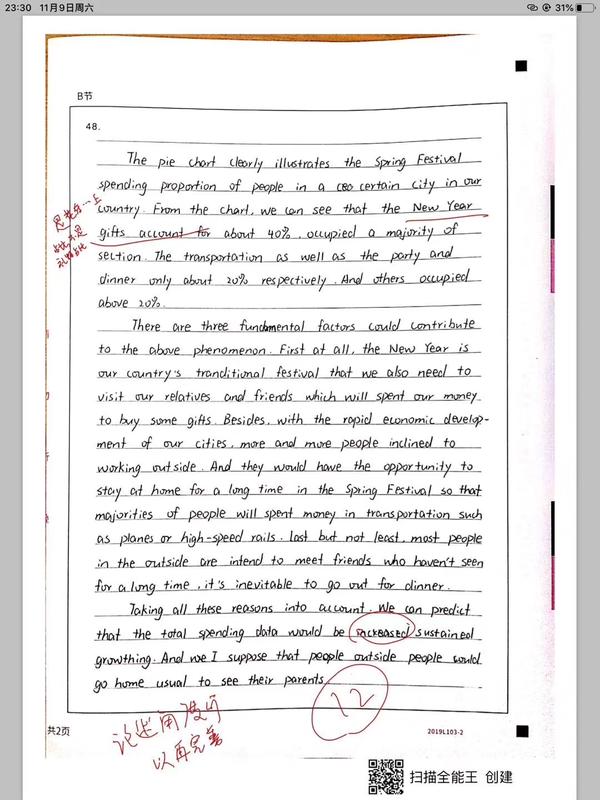 23:30 11月9日周六
31%
B节
48.
The pie chart clearly illustrates the Spring Festival
spending proportion of people in a certain city in our
country. From the chart, we can see that the New Year
gifts account for about 40%, occupied a majority of
section. The transportation as well as the party and
dinner only about 20% respectively. And others occupied
above 20%.
There are three fundamental factors could contribute
to the above phenomenon. First at all, the New Year is
our country's tranditional festival that we also need to
visit our relatives and friends which will spent our money
to buy some gifts. Besides, with the rapid economic develop-
ment of our cities, more and more people inclined to
working outside. And they would have the opportunity to
stay at home for a long time in the Spring Festival so that
majorities of people will spent money in transportation such
as planes or high-speed rails. Last but not least, most people
in the outside are intend to meet friends who haven't seen
for a long time, it's inevitable to go out for dinner.
Taking all these reasons into account. We can predict
that the total spending data would be increased sustained
growthing. And we I suppose that people outside people would
go home usual to see their parents.
12
论述角度可
以再完善
共2页
2019L103-2
扫描全能王 创建